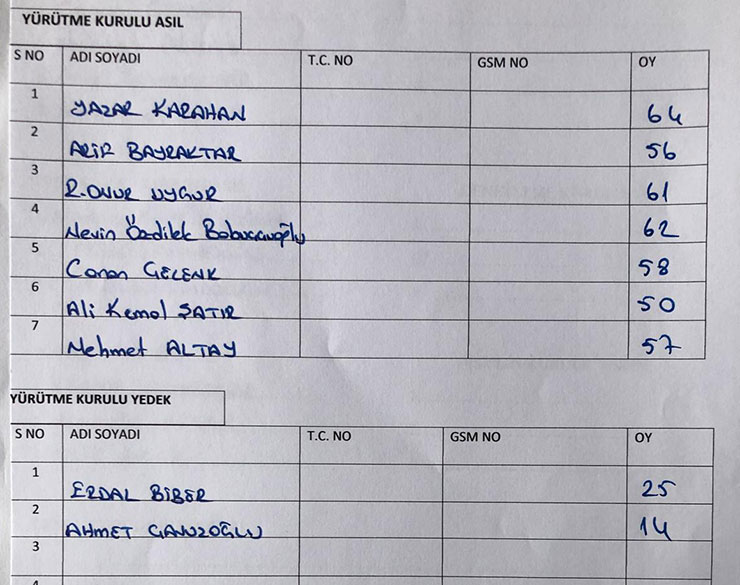 YÜRÜTME KURULU ASIL
S NO ADI SOYADI T.C. NO GSM NO OY
1 YAZAR KARAHAN 64
2 ARİF BAYRAKTAR 56
3 R. ONUR UYGUR 61
4 Nevin Özdilek 62
5 Canan GELENK 58
6 Ali Kemal ŞATIR 50
7 Mehmet ALTAY 57
YÜRÜTME KURULU YEDEK
S NO ADI SOYADI T.C. NO GSM NO OY
1 ERDAL BİBER 25
2 AHMET 14
3
4